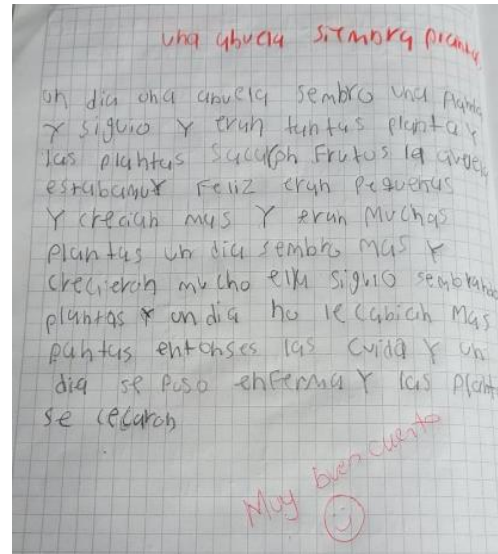 una abuela siembra planta
un dia una abuela sembro una planta
y siguio y erun tuntus planta y
las pluntus sacuron Frutos la abuela
estabamuy Feliz erun pequeñas
Y creciun mus Y erun Muchas
pluntus un dia sembro mas y
crecieron mucho ella siguio sembrando
pluntas y un dia no le cabian Mas
puntus entonses las cuida y un
dia se puso enferma Y las plant
se cecaron
Muy buen cuento